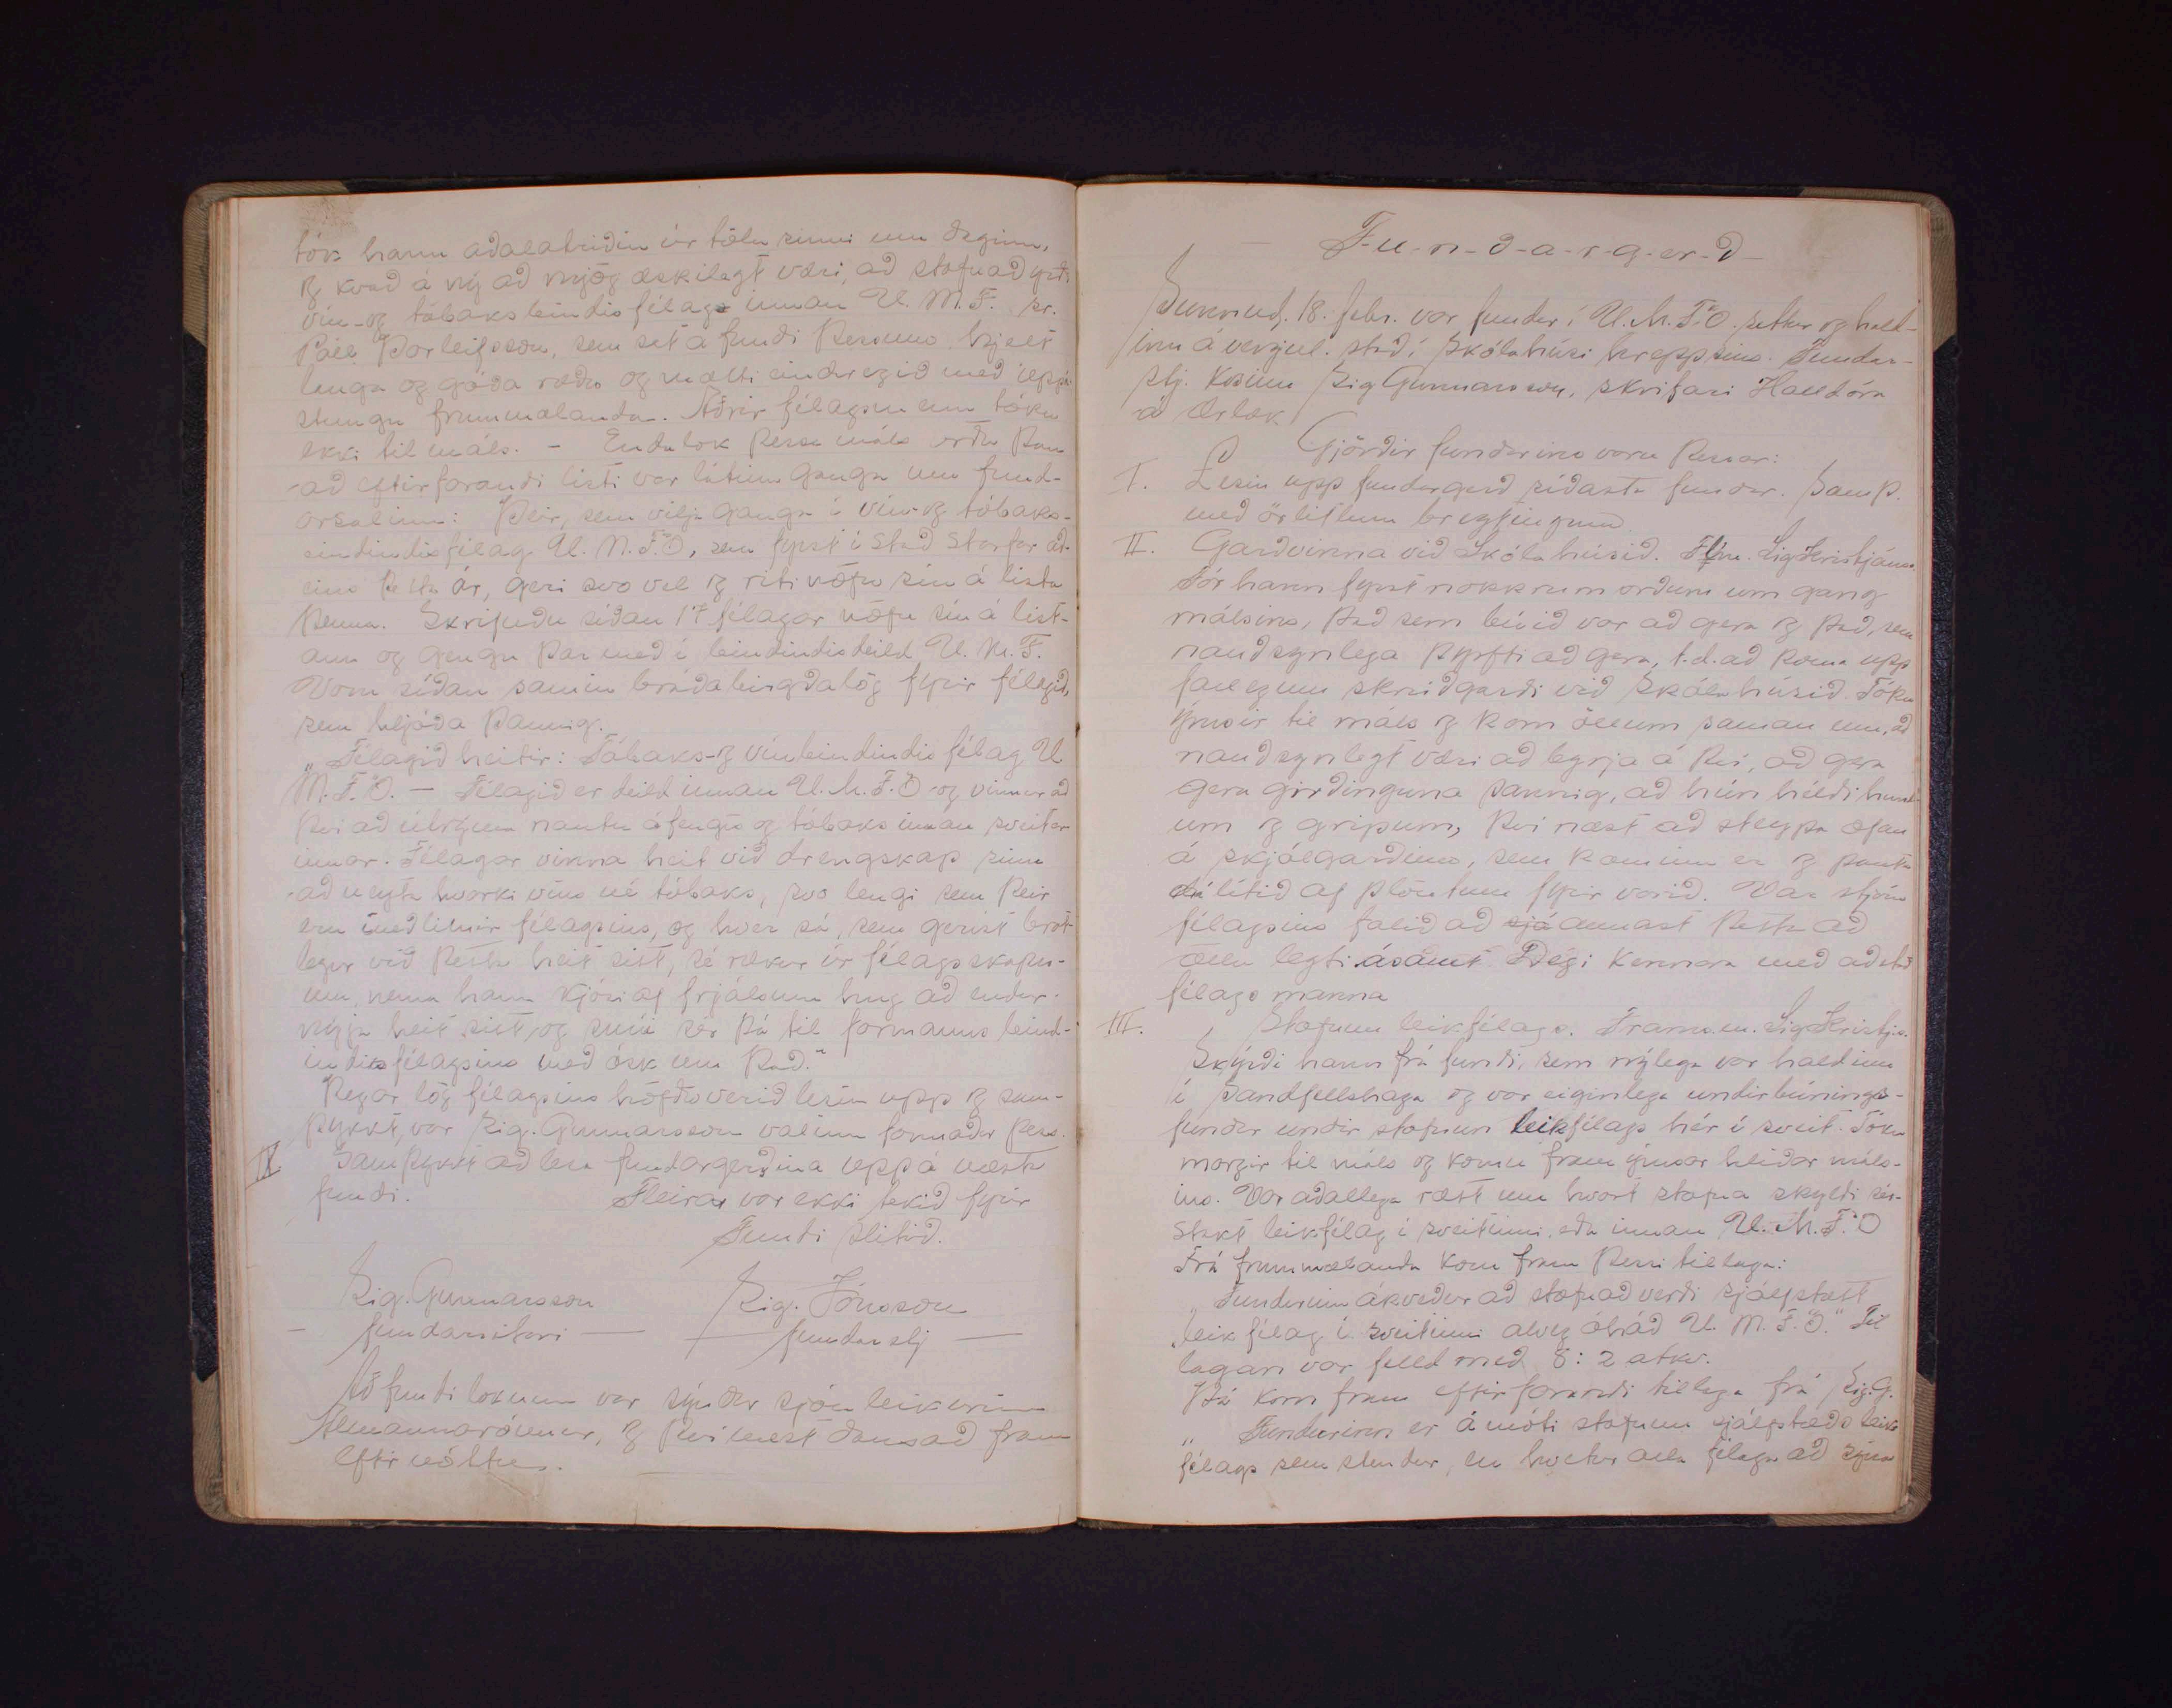 tók hann aðalatriðin úr tölu sinni um daginn,
og kvað á ný að mjög æskilegt væri, að stofnað yrði
vín- og tóbaksbindindisfélag innan U. M. F. sr.
Páll Þorleifsson, sem sat á fundi þessum hjelt
langa og góða ræðu og mælti eindregið með uppá-
stungu frummælanda. Aðrir félagsmenn tóku
ekki til máls. - Endalok þessa máls urðu þau
-að eftirfarandi listi var látinn ganga um fund-
arsalinn: Þeir, sem vilja ganga í vín- og tóbaks-
bindindisfélag U. M. F. Ö, sem fyrst í stað starfar að-
eins þetta ár, geri svo vel og riti nöfn sín á lista
þennan. Skrifuðu síðan 17 félagar nöfn sín á list-
ann og gengu þar með í bindindisdeild U. M. F.
Voru síðan samin bráðabirgðalög fyrir félagið,
sem hljóða þannig.
„Félagið heitir: Tóbaks- og vínbindindisfélag U.
M. F. Ö. - Félagið er deild innan U. M. F. Ö og vinnur að
því að útrýma nautn áfengis og tóbaks innan sveitar-
innar. Félagar vinna heit við drengskap sinn
-að neyta hvorki víns né tóbaks, svo lengi sem þeir
eru meðlimir félagsins, og hver sá, sem gerist brot-
legur við þetta heit sitt, sé rækur úr félagsskapn-
um, nema hann kjósi af frjálsum hug að endur-
nýja heit sitt, og snúi sér þá til formanns bind-
indisfélagsins með ósk um það."
Þegar lög félagsins höfðu verið lesin upp og sam-
þykkt, var Sig. Gunnarsson valinn formaður þess.
IX Samþykkt að lesa fundargerðina upp á næsta
fundi. Fleira var ekki tekið fyrir
Fundi slitið.
Sig. Gunnarsson Sig. Jónsson
- fundarritari - - fundarstj -
Að fundi loknum var sýndur sjónleikurinn
Almannarómur, og því næst dansað fram
eftir nóttu.
F-u-n-d-a-r-g-er-ð
Sunnud. 18. febr. var fundur í U. M. F. Ö. settur og hald-
inn á venjul. stað í Skólahúsi hreppsins. Fundar-
stj. kosinn Sig Gunnarsson, skrifari Halldóra
á Ærlæk
Gjörðir fundarins voru þessar:
I. Lesin upp fundargerð síðasta fundar. Samþ.
með örlitlum breytingum
II. Garðvinna við Skólahúsið. Frm. Sig Kristjáns.
Fór hann fyrst nokkrum orðum um gang
málsins, það sem búið var að gera og það, sem
nauðsynlega þyrfti að gera, t.d. að koma upp
fallegum skrúðgarði við Skólahúsið. Tóku
ýmsir til máls og kom öllum saman um, að
nauðsynlegt væri að byrja á því, að gera
gera girðinguna þannig, að hún héldi hund-
um og gripum, því næst að steypa ofan
á skjólgarðinn, sem kominn er og panta
dálítið af plöntum fyrir vorið. Var stjórn
félagsins falið að sjá annast þetta að
öllu leyti ásamt Degi Kennara með aðstoð
félagsmanna
III. Stofnun leikfélags. Framm. Sig Kristjs.
Skýrði hann frá fundi, sem nýlega var haldinn
í Sandfellshaga og var eiginlega undirbúnings-
fundur undir stofnun leikfélags hér í sveit. Tóku
margir til máls og komu fram ýmsar hliðar máls-
ins. Var aðallega rætt um hvort stofna skyldi sér-
stakt leikfélag í sveitinni, eða innan U. M. F. Ö
Frá frummælanda kom fram þessi tillaga:
„Fundurinn ákveður að stofnað verði sjálfstætt
leikfélag í sveitinni alveg óháð U. M. F. Ö." Til
lagan var felld með 8:2 atkv.
Þá kom fram eftirfarandi tillaga frá Sig. G.
„Fundurinn er á móti stofnun sjálfstæðs leik-
félags sem stendur, en hvetur alla félaga að sýna